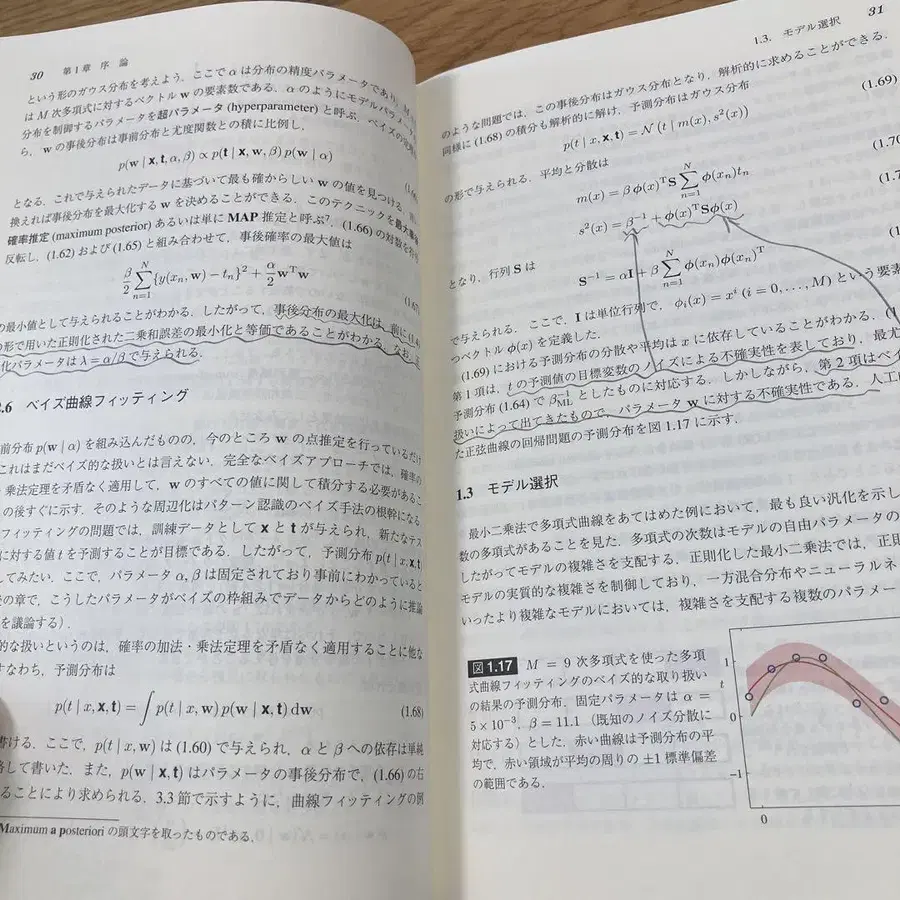 30 第1章 序 論
という形のガウス分布を考えよう.ここで α は分布の精度パラメータであり,
は M 次多項式に対するベクトル w の要素数である.α のようにモデルパラメータの
分布を制御するパラメータを超パラメータ (hyperparameter) と呼ぶ.ベイズの定理か
ら,w の事後分布は事前分布と尤度関数との積に比例し,
p(w | x, t, α, β) ∝ p(t | x, w, β) p(w | α)
となる.これで与えられたデータに基づいて最も確からしい w の値を見つける,
換えれば事後分布を最大化する w を決めることができる.このテクニックを最大事後
確率推定 (maximum posterior) あるいは単に MAP 推定と呼ぶ⁷.(1.66) の対数を
反転し,(1.62) および (1.65) と組み合わせて,事後確率の最大値は
β/2 ∑_{n=1}^{N} {y(x_n, w) − t_n}² + α/2 w^T w
(1.67)
の最小値として与えられることがわかる.したがって,事後分布の最大化は,前に
の形で用いた正則化された二乗和誤差の最小化と等価であることがわかる.なお,
化パラメータは λ = α/β で与えられる.
2.6 ベイズ曲線フィッティング
前分布 p(w | α) を組み込んだものの,今のところ w の点推定を行っているだけ
これはまだベイズ的な扱いとは言えない.完全なベイズアプローチでは,確率の
・乗法定理を矛盾なく適用して,w のすべての値に関して積分する必要があるこ
の後すぐに示す.そのような周辺化はパターン認識のベイズ手法の根幹になる
フィッティングの問題では,訓練データとして x と t が与えられ,新たなテス
に対する値 t を予測することが目標である.したがって,予測分布 p(t | x, x, t)
してみたい.ここで,パラメータ α, β は固定されており事前にわかっていると
の章で,こうしたパラメータがベイズの枠組みでデータからどのように推論
を議論する).
的な扱いというのは,確率の加法・乗法定理を矛盾なく適用することに他な
すなわち,予測分布は
p(t | x, x, t) = ∫ p(t | x, w) p(w | x, t) dw (1.68)
書ける.ここで,p(t | x, w) は (1.60) で与えられ,α と β への依存は単純
略して書いた.また,p(w | x, t) はパラメータの事後分布で,(1.66) の右
ることにより求められる.3.3 節で示すように,曲線フィッティングの例
Maximum a posteriori の頭文字を取ったものである.
1.3. モデル選択 31
のような問題では,この事後分布はガウス分布となり,解析的に求めることができる.
同様に (1.68) の積分も解析的に解け,予測分布はガウス分布
p(t | x, x, t) = N(t | m(x), s²(x)) (1.69)
の形で与えられる.平均と分散は
m(x) = β φ(x)^T S ∑_{n=1}^{N} φ(x_n) t_n
s²(x) = β^{-1} + φ(x)^T S φ(x)
となり,行列 S は
S^{-1} = αI + β ∑_{n=1}^{N} φ(x_n) φ(x_n)^T
で与えられる.ここで,I は単位行列で,φ_i(x) = x^i (i = 0, . . . , M) という要素
つベクトル φ(x) を定義した.
(1.69) における予測分布の分散や平均は x に依存していることがわかる.
第1項は,t の予測値の目標変数のノイズによる不確実性を表しており,最尤
予測分布 (1.64) で β_{ML}^{-1} としたものに対応する.しかしながら,第2項はベイ
扱いによって出てきたもので,パラメータ w に対する不確実性である.人工
た正弦曲線の回帰問題の予測分布を図 1.17 に示す.
1.3 モデル選択
最小二乗法で多項式曲線をあてはめた例において,最も良い汎化を示し
数の多項式があることを見た.多項式の次数はモデルの自由パラメータの
したがってモデルの複雑さを支配する.正則化した最小二乗法では,正則
モデルの実質的な複雑さを制御しており,一方混合分布やニューラルネ
いったより複雑なモデルにおいては,複雑さを支配する複数のパラメー
図 1.17 M = 9 次多項式を使った多項
式曲線フィッティングのベイズ的な取り扱い
の結果の予測分布.固定パラメータは α =
5×10⁻³, β = 11.1 (既知のノイズ分散に
対応する) とした.赤い曲線は予測分布の平
均で,赤い領域が平均の周りの ±1 標準偏差
の範囲である.
1
t
0
−1
0